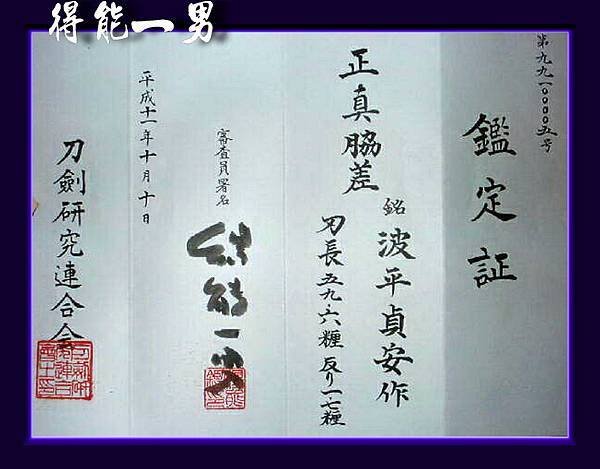 得能一男
第九九一〇〇〇〇五号
鑑定証
正真脇差
銘 波平貞安作
刃長五九・六糎 反り一・七糎
審査員署名
得能一男
平成十一年十月十日
刀劍研究連合会